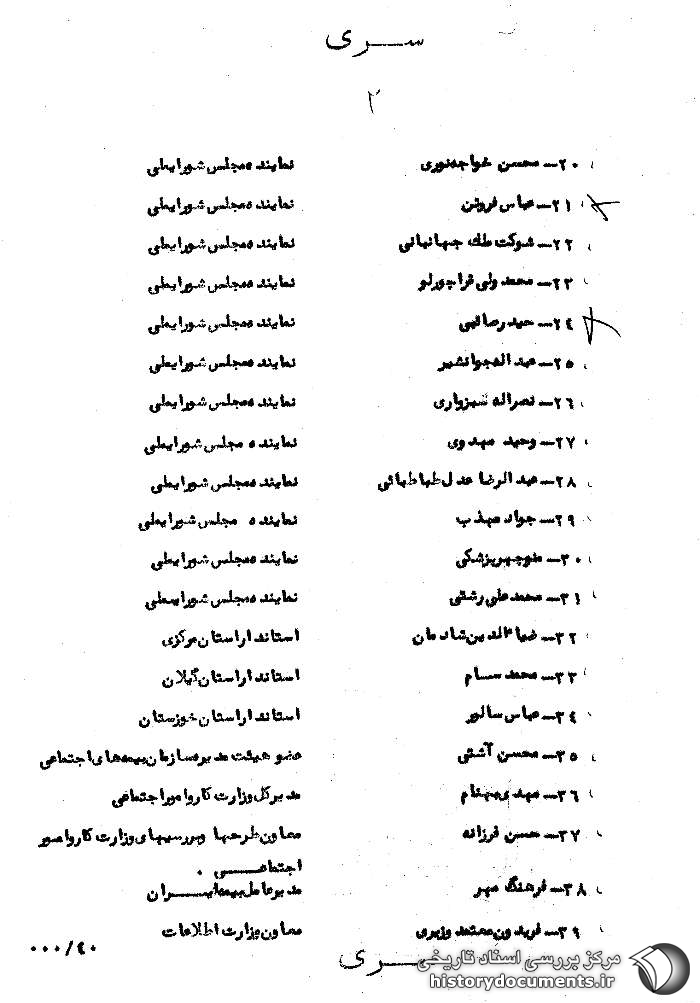 سری
۲
۲۰ـ محسن خواجه‌نوری نماینده مجلس شورایملی
۲۱ـ عباس فروتن نماینده مجلس شورایملی
۲۲ـ شوکت ملک جهانبانی نماینده مجلس شورایملی
۲۳ـ محمد ولی قراچورلو نماینده مجلس شورایملی
۲۴ـ حیدر صائبی نماینده مجلس شورایملی
۲۵ـ عبداله جوانشیر نماینده مجلس شورایملی
۲۶ـ نصراله سبزواری نماینده مجلس شورایملی
۲۷ـ وحید مهدوی نماینده مجلس شورایملی
۲۸ـ عبدالرضا عدل طباطبائی نماینده مجلس شورایملی
۲۹ـ جواد مهذب نماینده مجلس شورایملی
۳۰ـ منوچهر پزشکی نماینده مجلس شورایملی
۳۱ـ محمد علی رشتی نماینده مجلس شورایملی
۳۲ـ ضیاءالدین شادمان استاندار استان مرکزی
۳۳ـ محمد سام استاندار استان گیلان
۳۴ـ عباس سالور استاندار استان خوزستان
۳۵ـ محسن آشتی عضو هیئت مدیره سازمان بیمه‌های اجتماعی
۳۶ـ مهدی بهنام مدیر کل وزارت کار و امور اجتماعی
۳۷ـ حسن فرزانه معاون طرحها و بررسیهای وزارت کار و امور
اجتماعی .
۳۸ـ فرهنگ مهر مدیر عامل بیمه ایران
۳۹ـ فریدون معتمد وزیری معاون وزارت اطلاعات
۰۰۰/۴۰
سری
مرکز بررسی اسناد تاریخی
historydocuments.ir